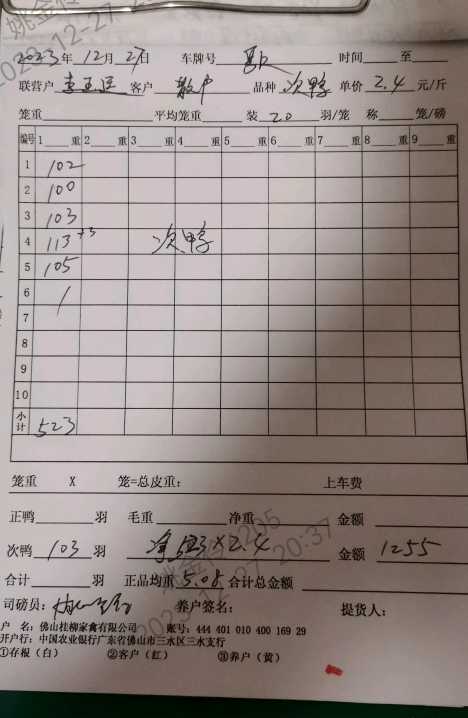 2023年 12月 27日 车牌号 时间 至
联营户 客户 散户 品种 次鸭 单价 2.4 元/斤
笼重 平均笼重 装 20 羽/笼 称 笼/磅
编号 1 重 2 重 3 重 4 重 5 重 6 重 7 重 8 重 9 重
1 102
2 100
3 103
4 113 +3 次鸭
5 105
6 /
7
8
9
10
小计 523
笼重 X 笼=总皮重: 上车费
正鸭 羽 毛重 净重 金额
次鸭 103 羽 净523×2.4 金额 1255
合计 羽 正品均重 5.08 合计总金额
司磅员: 养户签名: 提货人:
户 名: 佛山桂柳家禽有限公司 账号: 444 401 010 400 169 29
开户行: 中国农业银行广东省佛山市三水区三水支行
①存根(白) ②客户(红) ③养户(黄)
2023-12-27 20:37